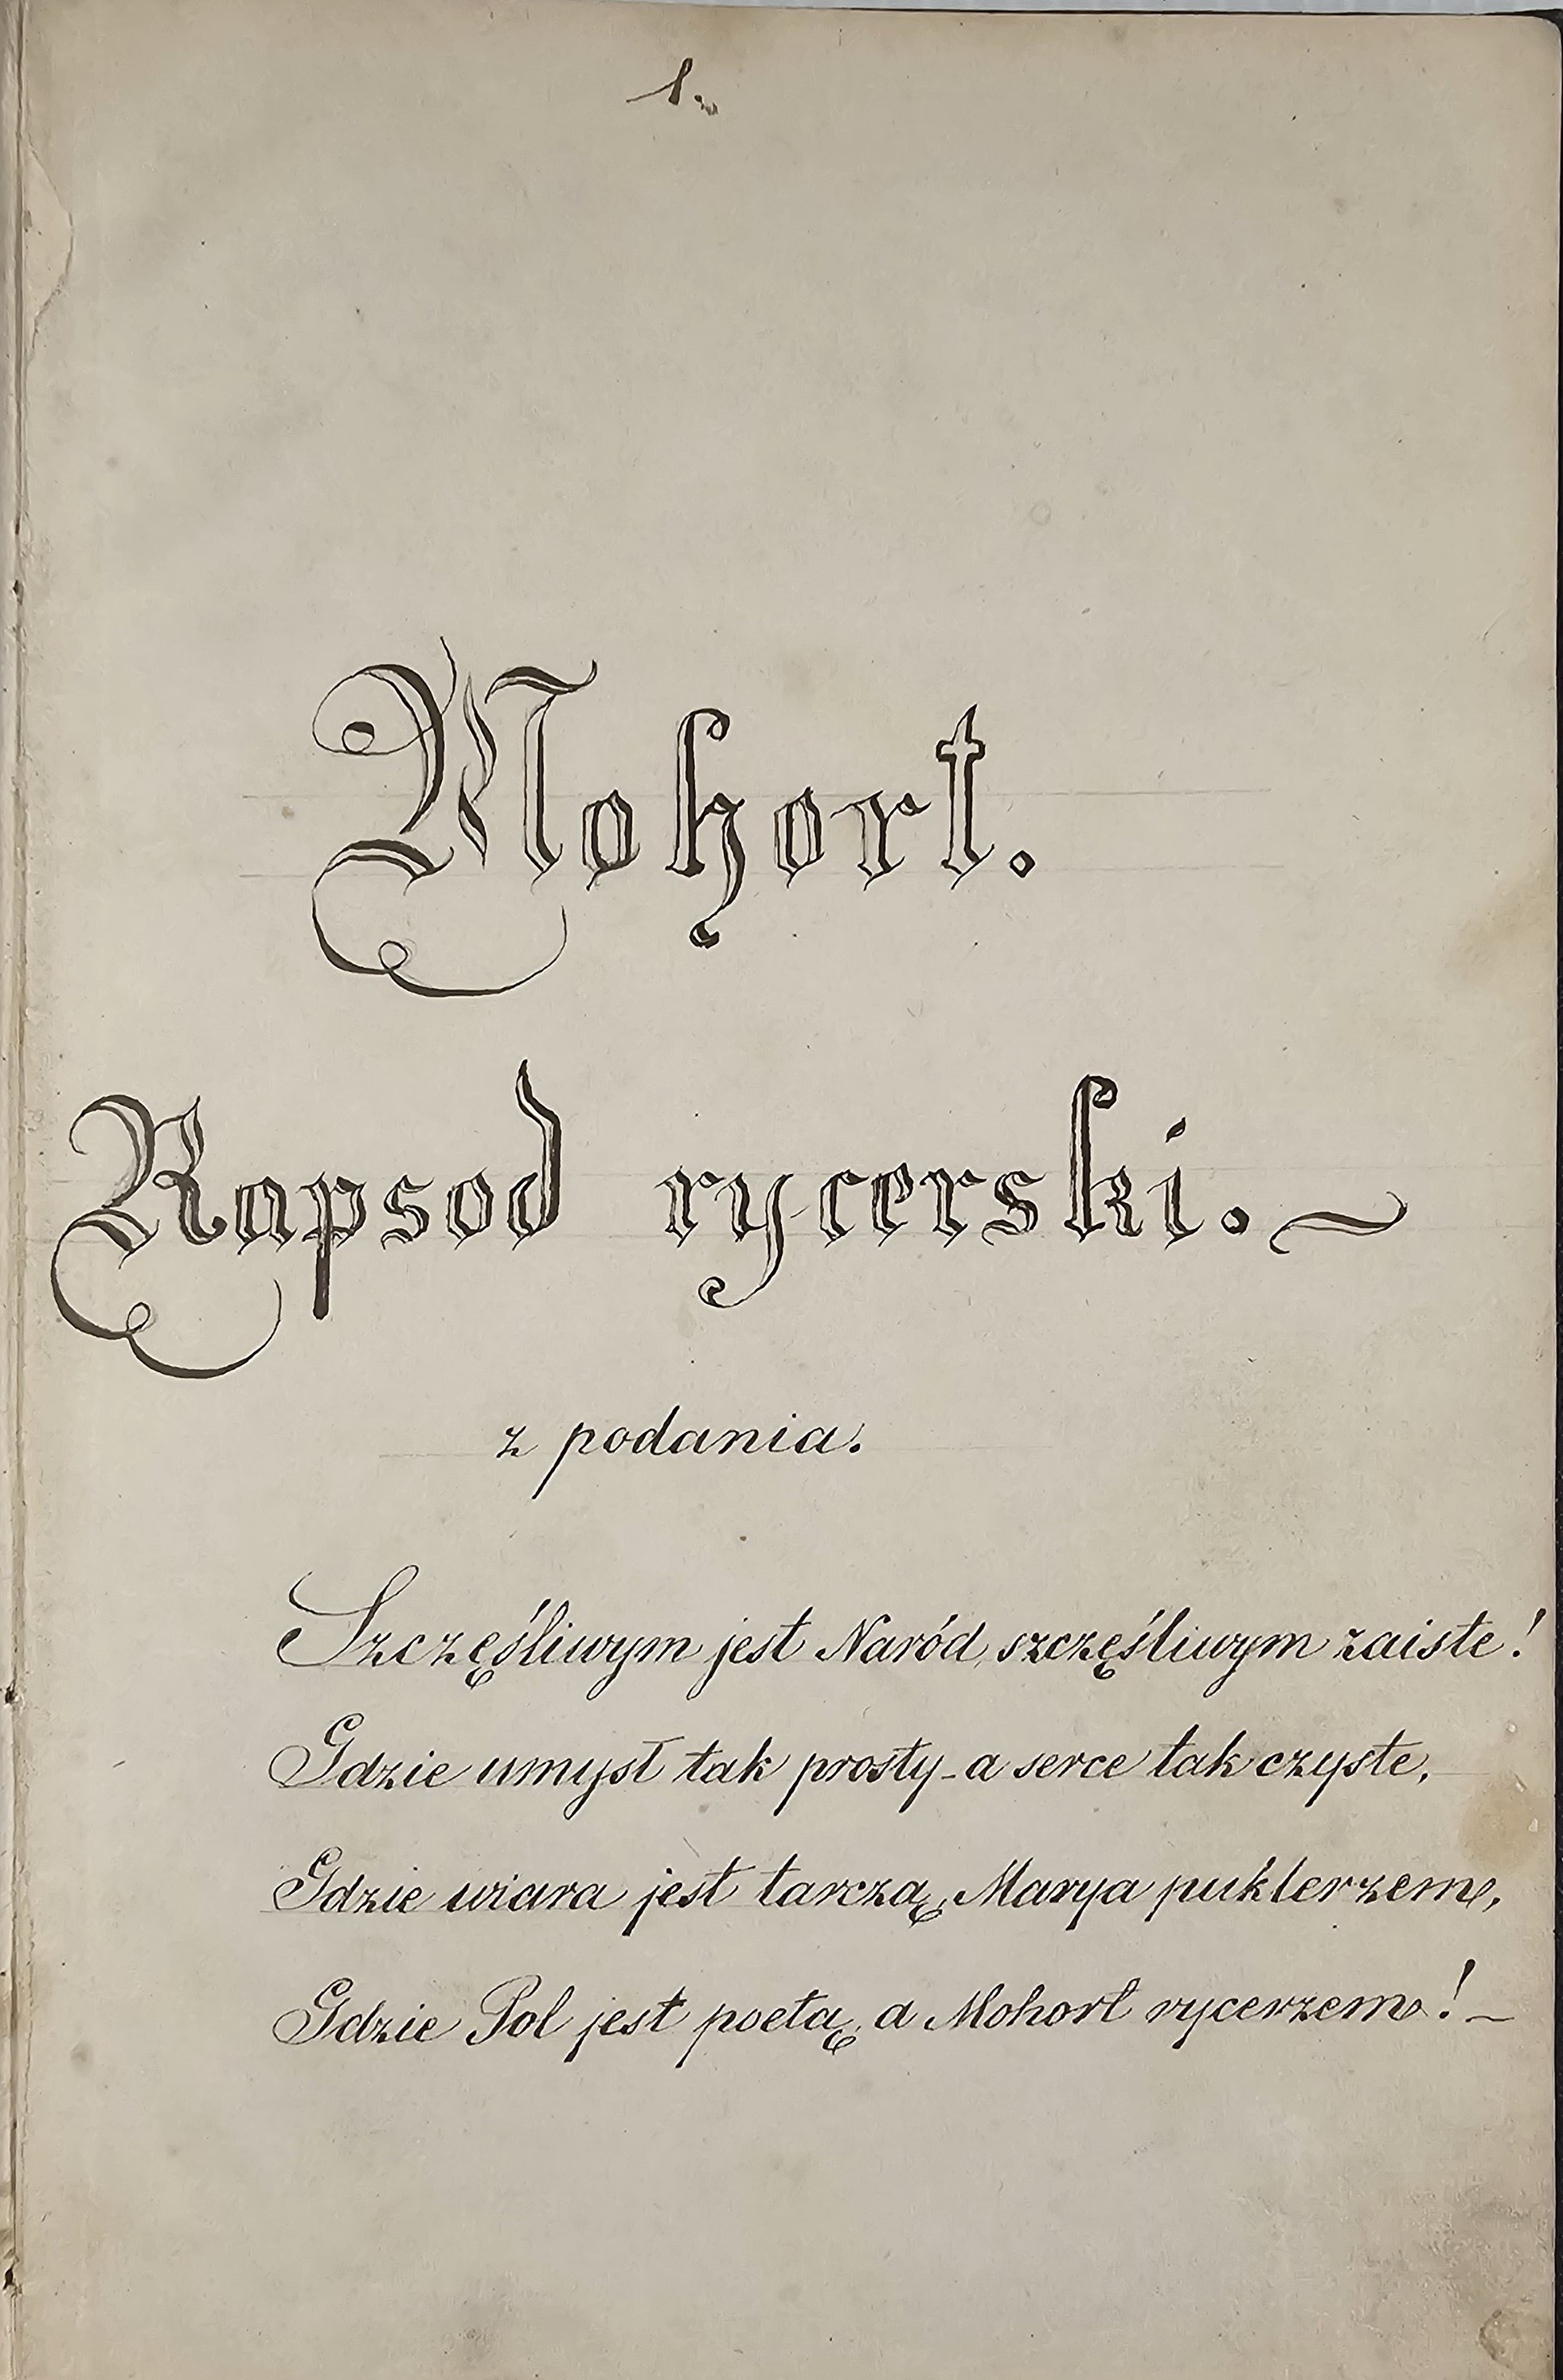 1.
Mohort.
Rapsod rycerski. ~
z podania.
Szczęśliwym jest Naród, szczęśliwym zaiste!
Gdzie umysł tak prosty - a serce tak czyste,
Gdzie wiara jest tarczą, Marya puklerzem,
Gdzie Pol jest poetą, a Mohort rycerzem! ~